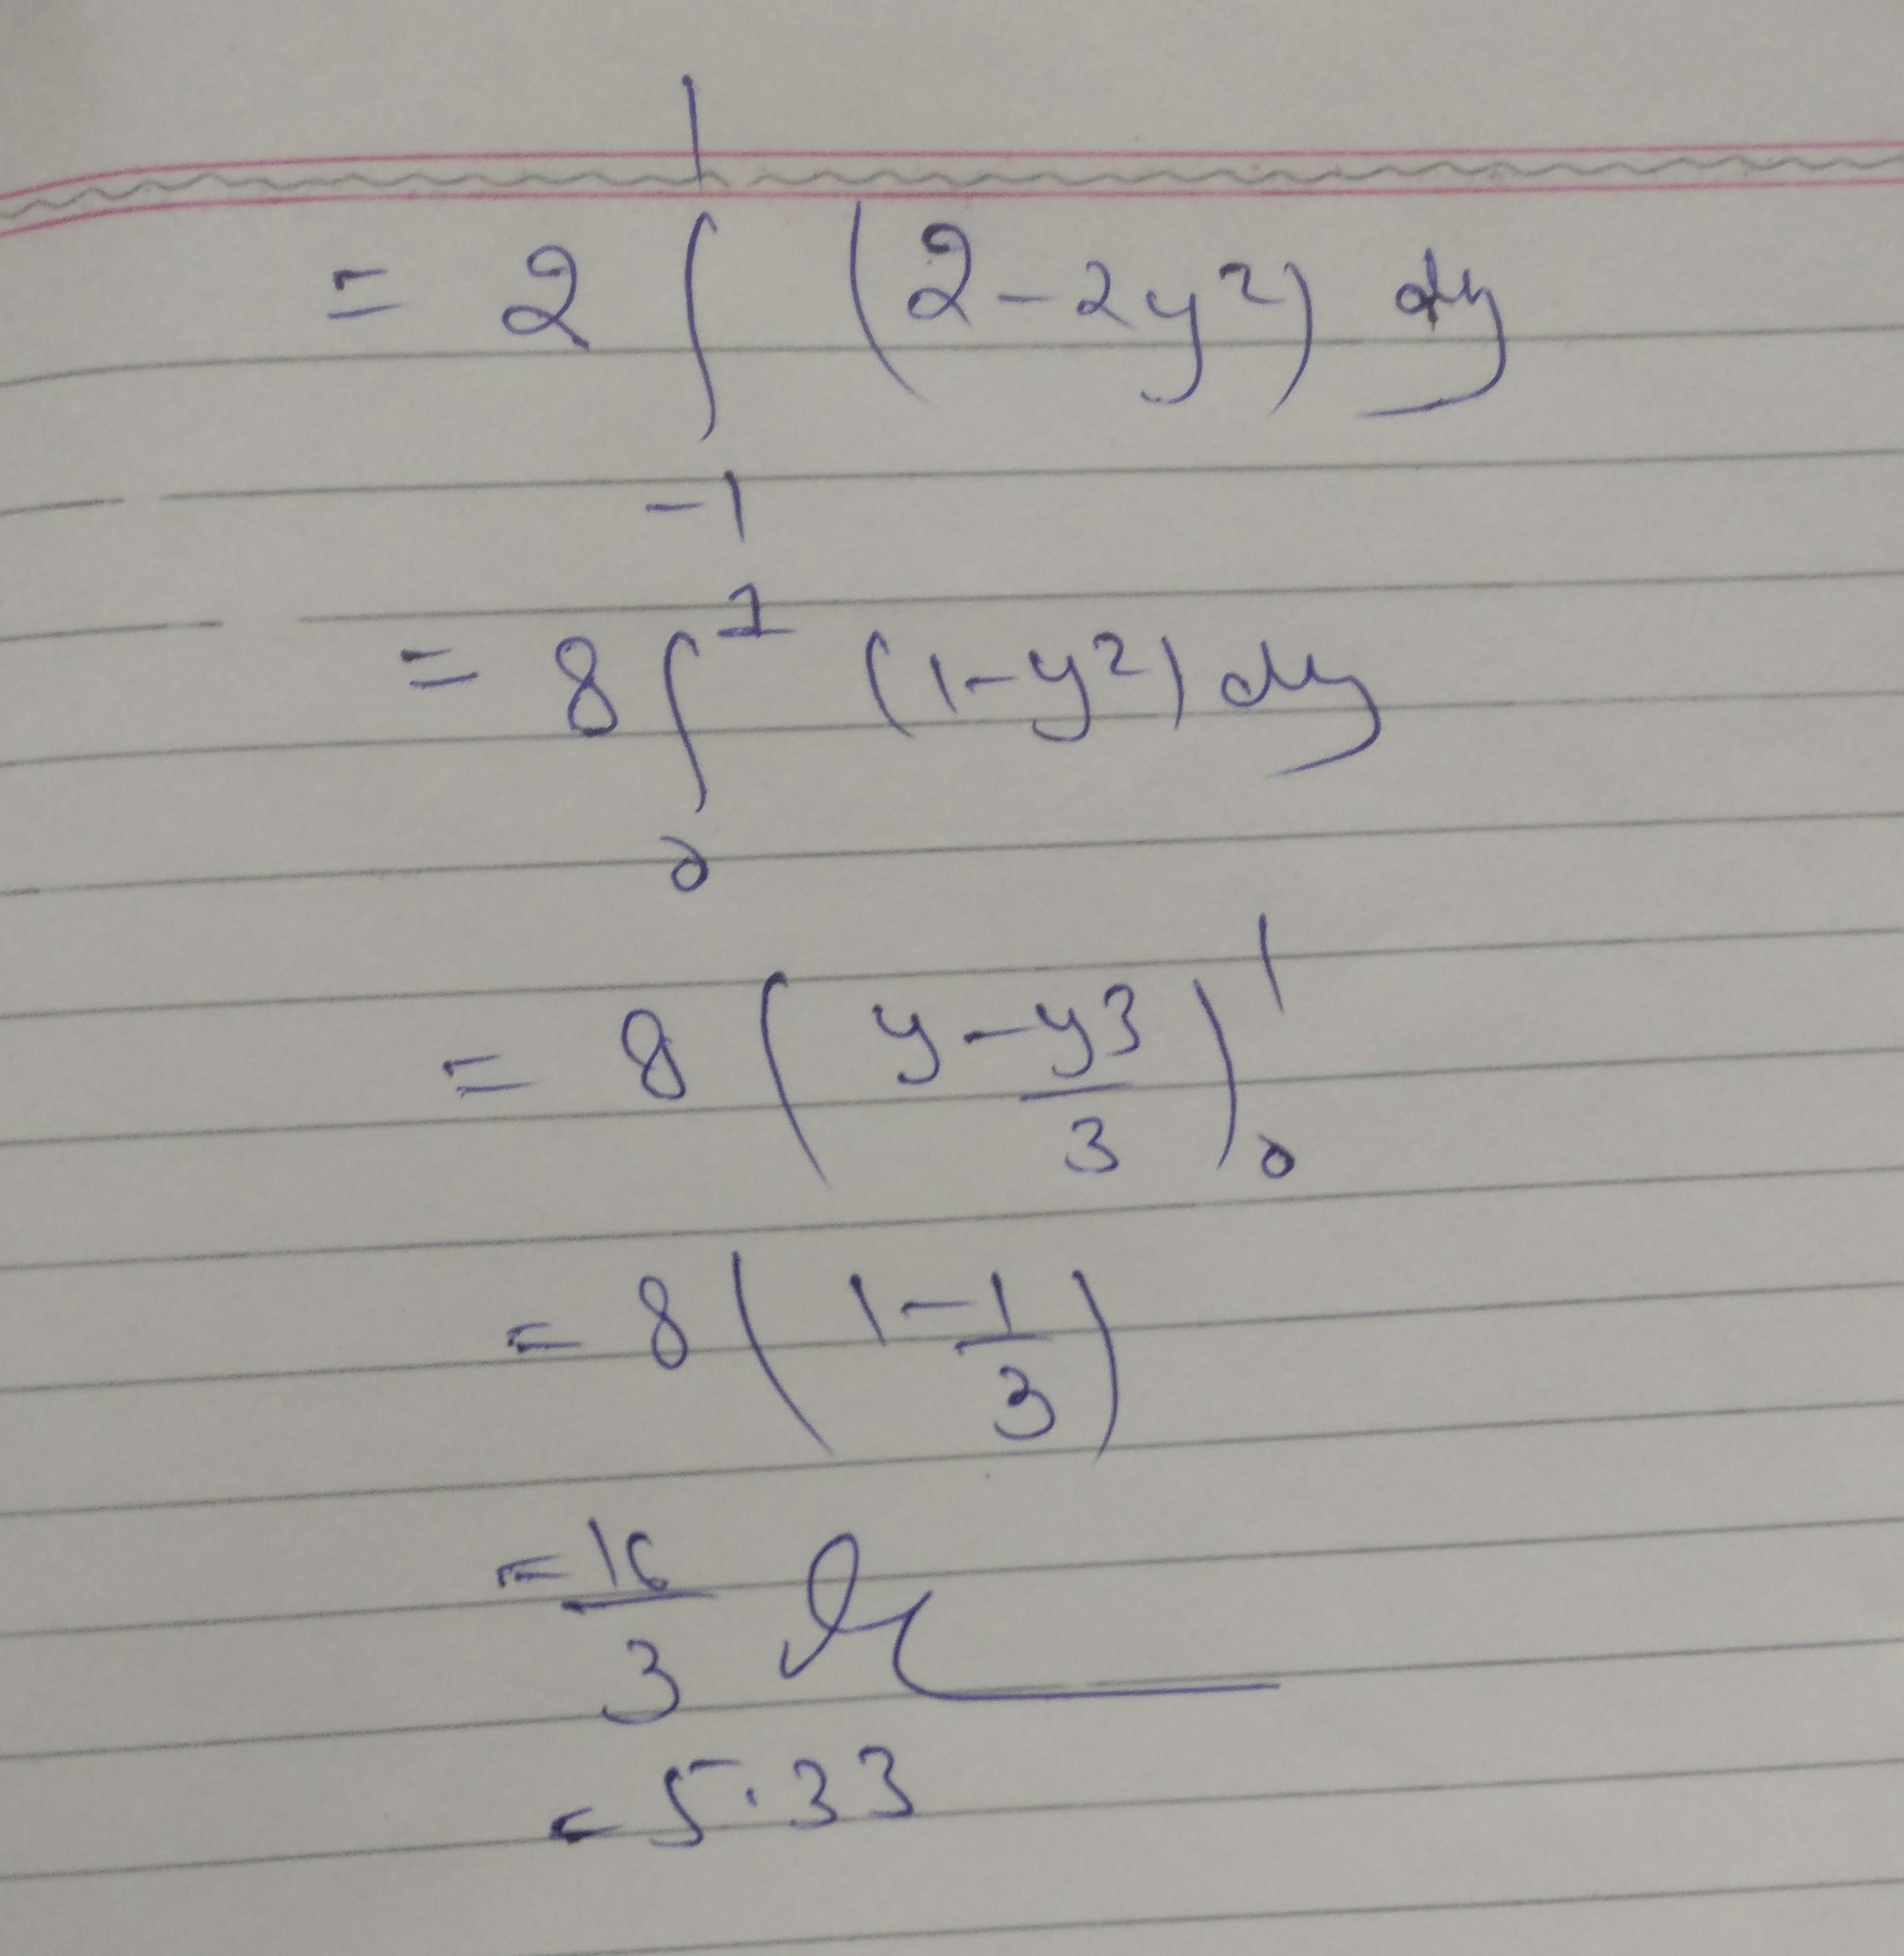 = 2 ∫₋₁¹ (2 - 2y²) dy
= 8 ∫₀¹ (1 - y²) dy
= 8 (y - y³/3)₀¹
= 8 (1 - 1/3)
= 16/3
= 5.33